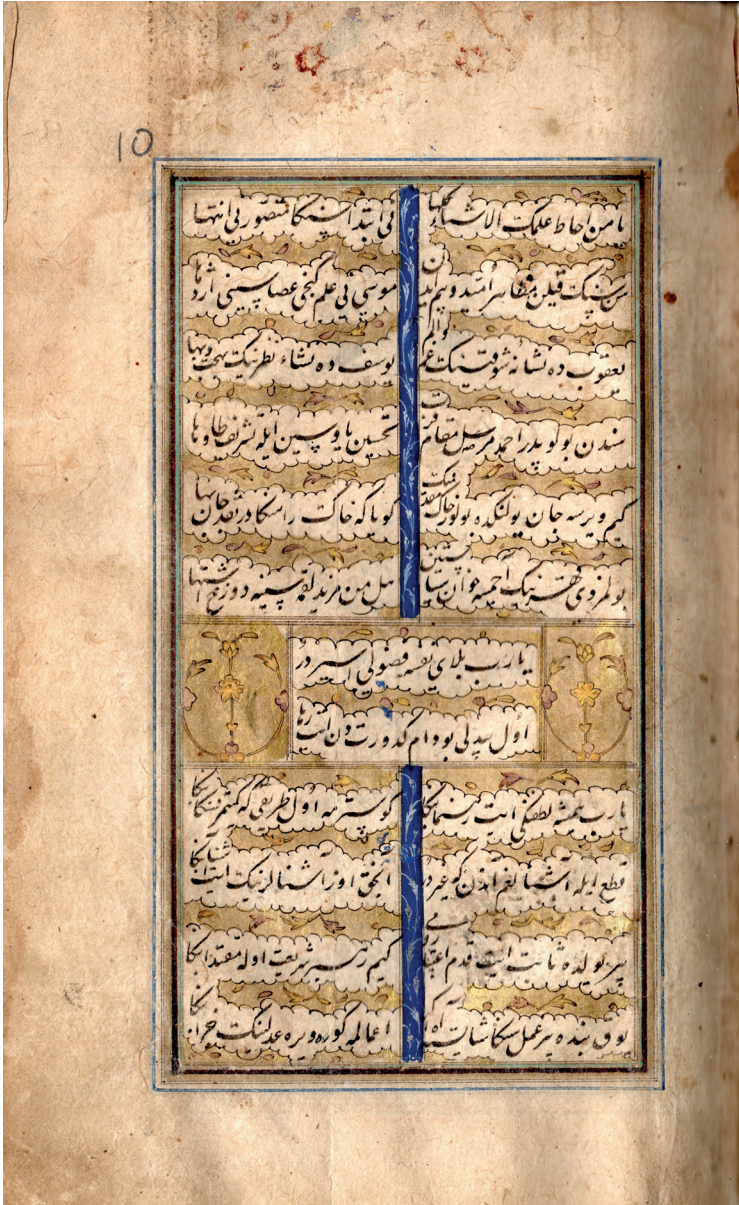 یا من احاط علمک الاشیاء کلها نی ابتدا سنکا متصور نی انتها
قیلن مظاهر امید و بیم ایدن موسی نی علم کنجی عصاسینی اژدها
یعقوب ده نشانه شوقینک غم و الم یوسف ده نشاء نظرینک بهجت و بها
سندن بولوبدر احمد مرسل مقام قرب تحسین یا و سین ایله تشریف طا و ها
کیم ویرسه جان یولنکده بولور خاک مقدمینک کویا که خاک راهنکا در نقد جان بها
بولمزدی آچمسه خوان هل من مزید لقمه سینه دوزخ اشتها
یارب بلای نفسه فضولی اسیر در
اول بیدلی بو دام کدورت دن ایت رها
یارب همیشه لطفنکی ایت رهنما منکا کوسترمه اول طریقی که کیتمز سنکا منکا
قطع ایله آشنالیغم آندن که غیر در انجق اوز آشنالرینک ایت آشنا منکا
بیر یولده ثابت ایت قدم اعتبارمی کیم رهبر شریعت اوله مقتدا منکا
یوق بنده بیر عمل سنکا شایسته آه اکر اعمالمه کوره ویره عدلینک جزا منکا
10